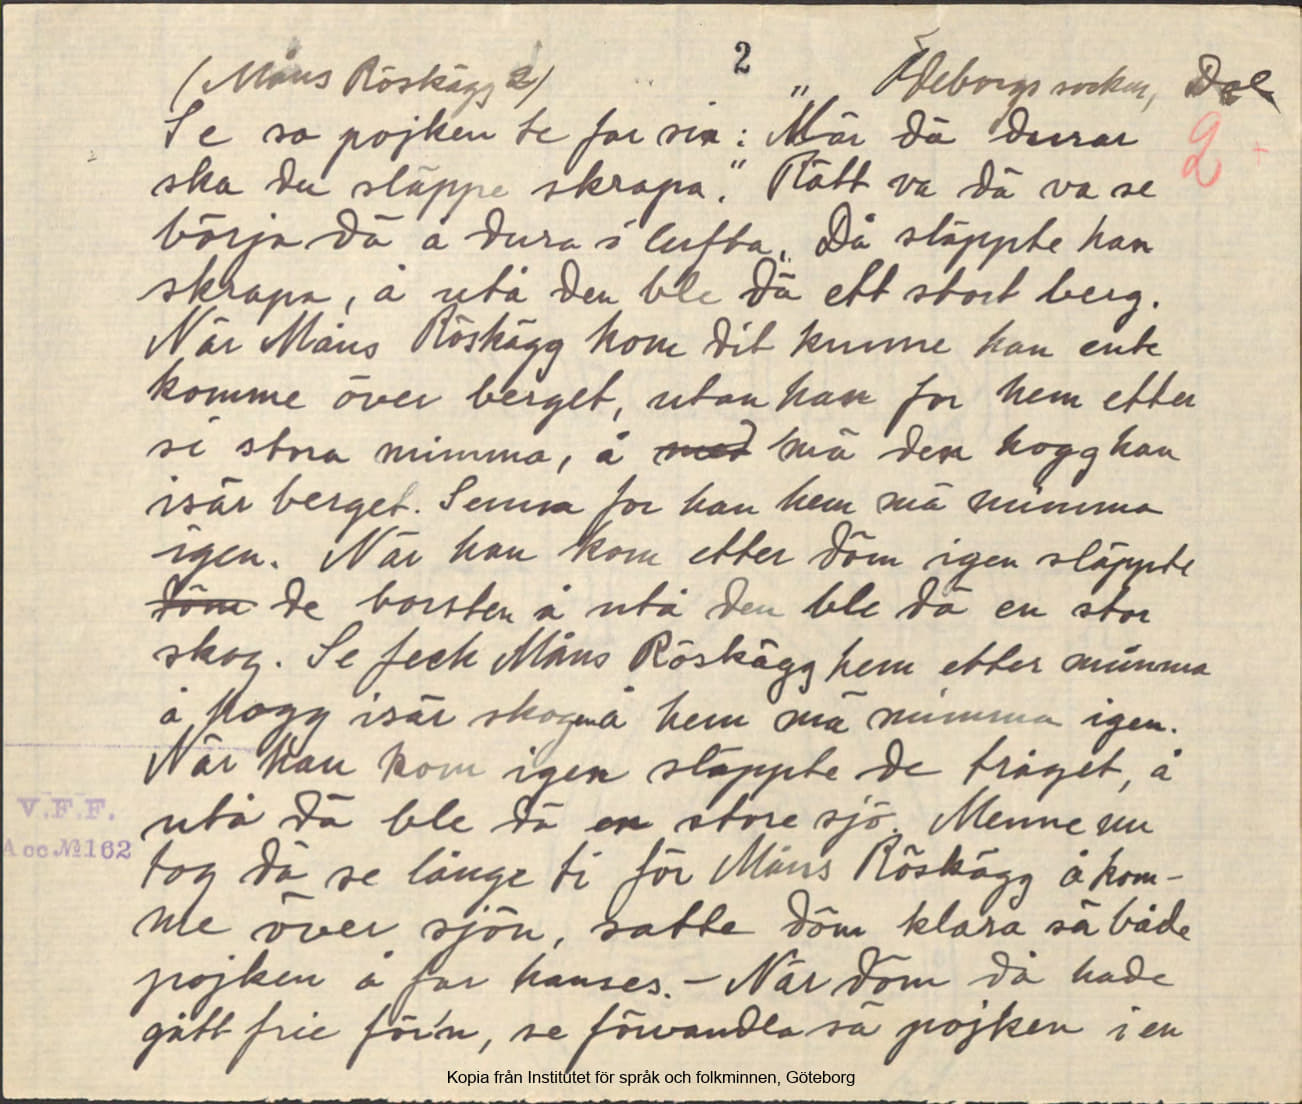 2
(Måns Röskägg 2) Ödeborgs socken, Dal
2
Se sa pojken te far sin: „När dä durar
ska du släppe skrapa." Rätt va dä va se
börja dä å dura i lufta. Då släppte han
skrapa, å utå den ble dä ett stort berg.
När Måns Röskägg kom dit kunne han ente
komme över berget, utan han for hem etter
si stora mimma, å med mä den hogg han
isär berget. Senna for han hem mä mimma
igen. När han kom etter döm igen släppte
döm de borsten å utå den ble dä en stor
skog. Se feck Måns Röskägg hem etter mimma
å hogg isär skogen å hem mä mimma igen.
När han kom igen släppte de tråget, å
utå dä ble dä en store sjö. Menne nu
tog dä se länge ti för Måns Röskägg å kom-
me över sjön, satte döm klara sä både
pojken å far hanses. – När döm då hade
gått frie för'n, se förvandla sä pojken i en
V.F.F.
Acc. № 162
Kopia från Institutet för språk och folkminnen, Göteborg